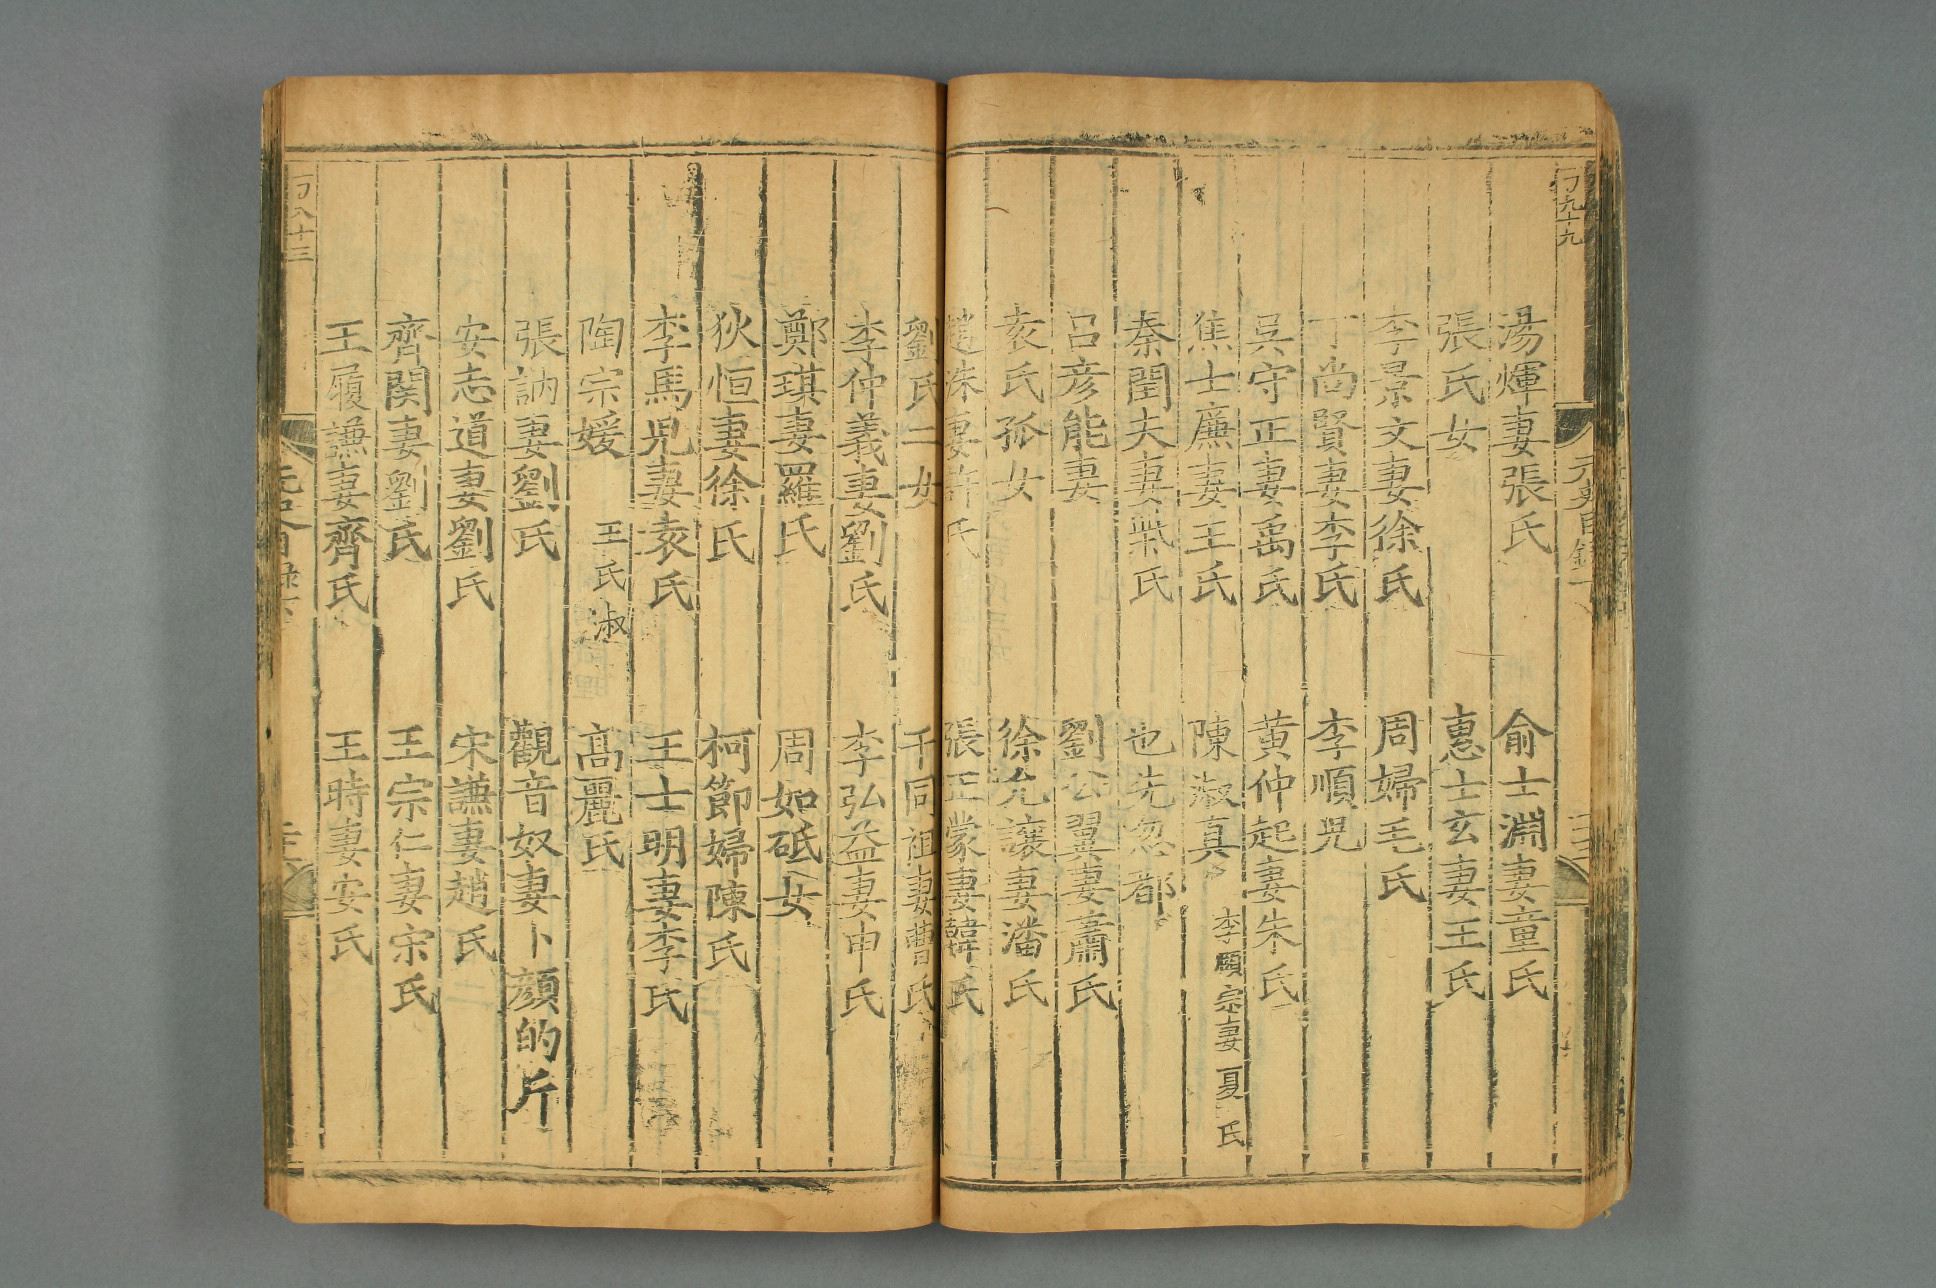 湯煇妻張氏 俞士淵妻童氏
張氏女 惠士玄妻王氏
李景文妻徐氏 周婦毛氏
丁尚賢妻李氏 李順児
吳守正妻禹氏 黃仲起妻朱氏
焦士廉妻王氏 陳淑真 李顯宗妻夏氏
秦閏夫妻柴氏 也先忽都
呂彦能妻 劉公翼妻蕭氏
袁氏孤女 徐允讓妻潘氏
趙洙妻許氏 張正蒙妻韓氏
劉氏二女 于同祖妻曹氏
李仲義妻劉氏 李弘益妻申氏
鄭琪妻羅氏 周如砥女
狄恒妻徐氏 柯節婦陳氏
李馬児妻袁氏 王士明妻李氏
陶宗媛 王氏淑 高麗氏
張訥妻劉氏 觀音奴妻卜顔的斤
安志道妻劉氏 宋謙妻趙氏
齊関妻劉氏 王宗仁妻宋氏
王履謙妻齊氏 王時妻安氏